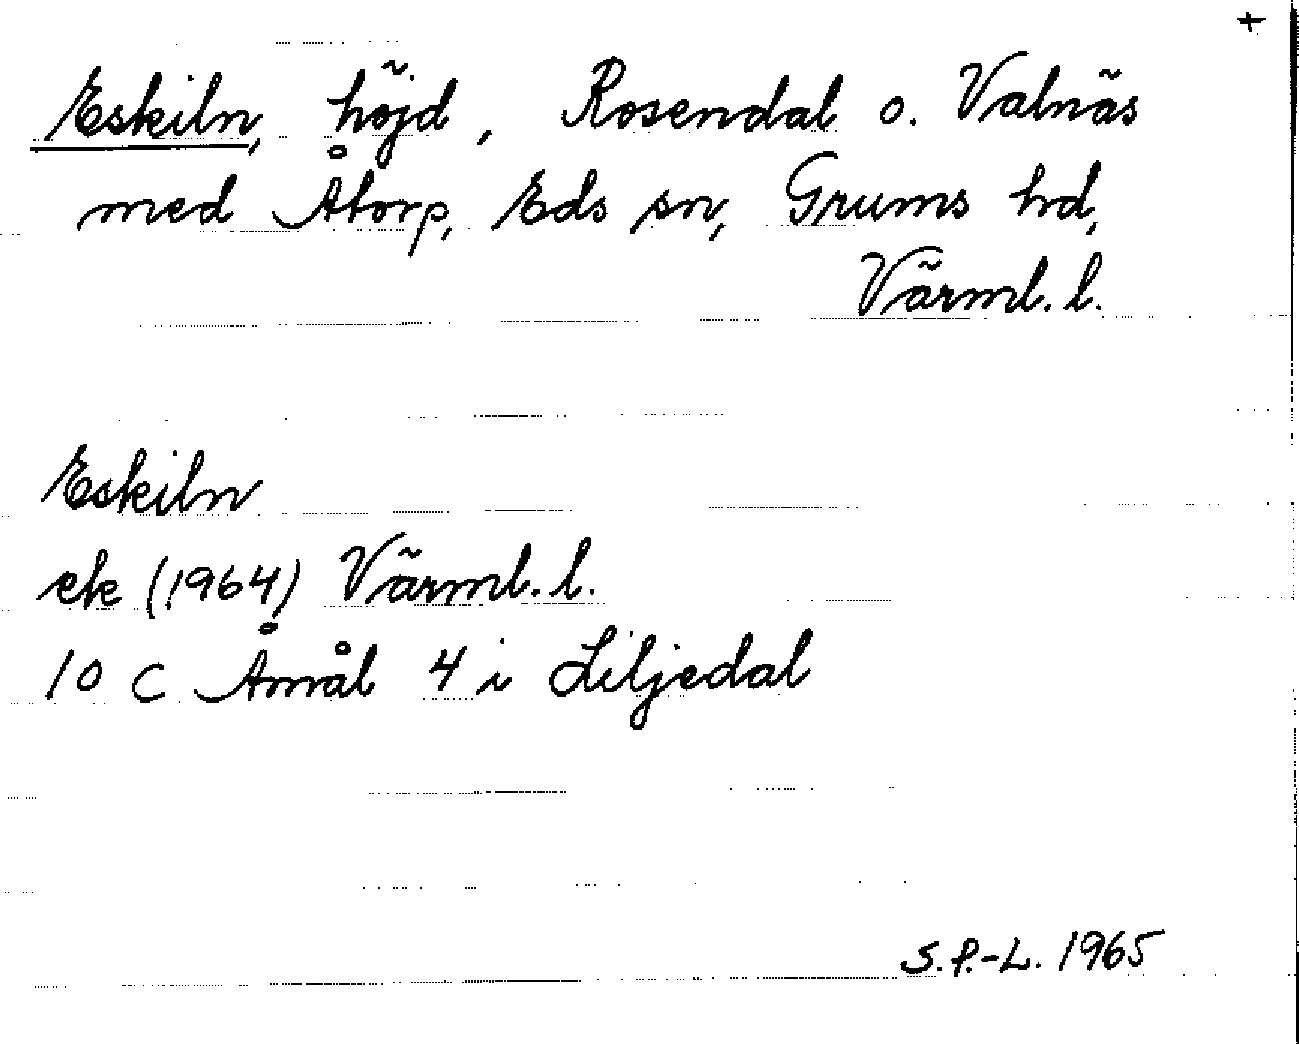 +
Eskiln, höjd, Rosendal o. Valnäs
med Åtorp, Eds sn, Grums hd,
Värml. l.
Eskiln
ek (1964) Värml. l.
10 C Åmål 4 i Liljedal
S.P.-L. 1965